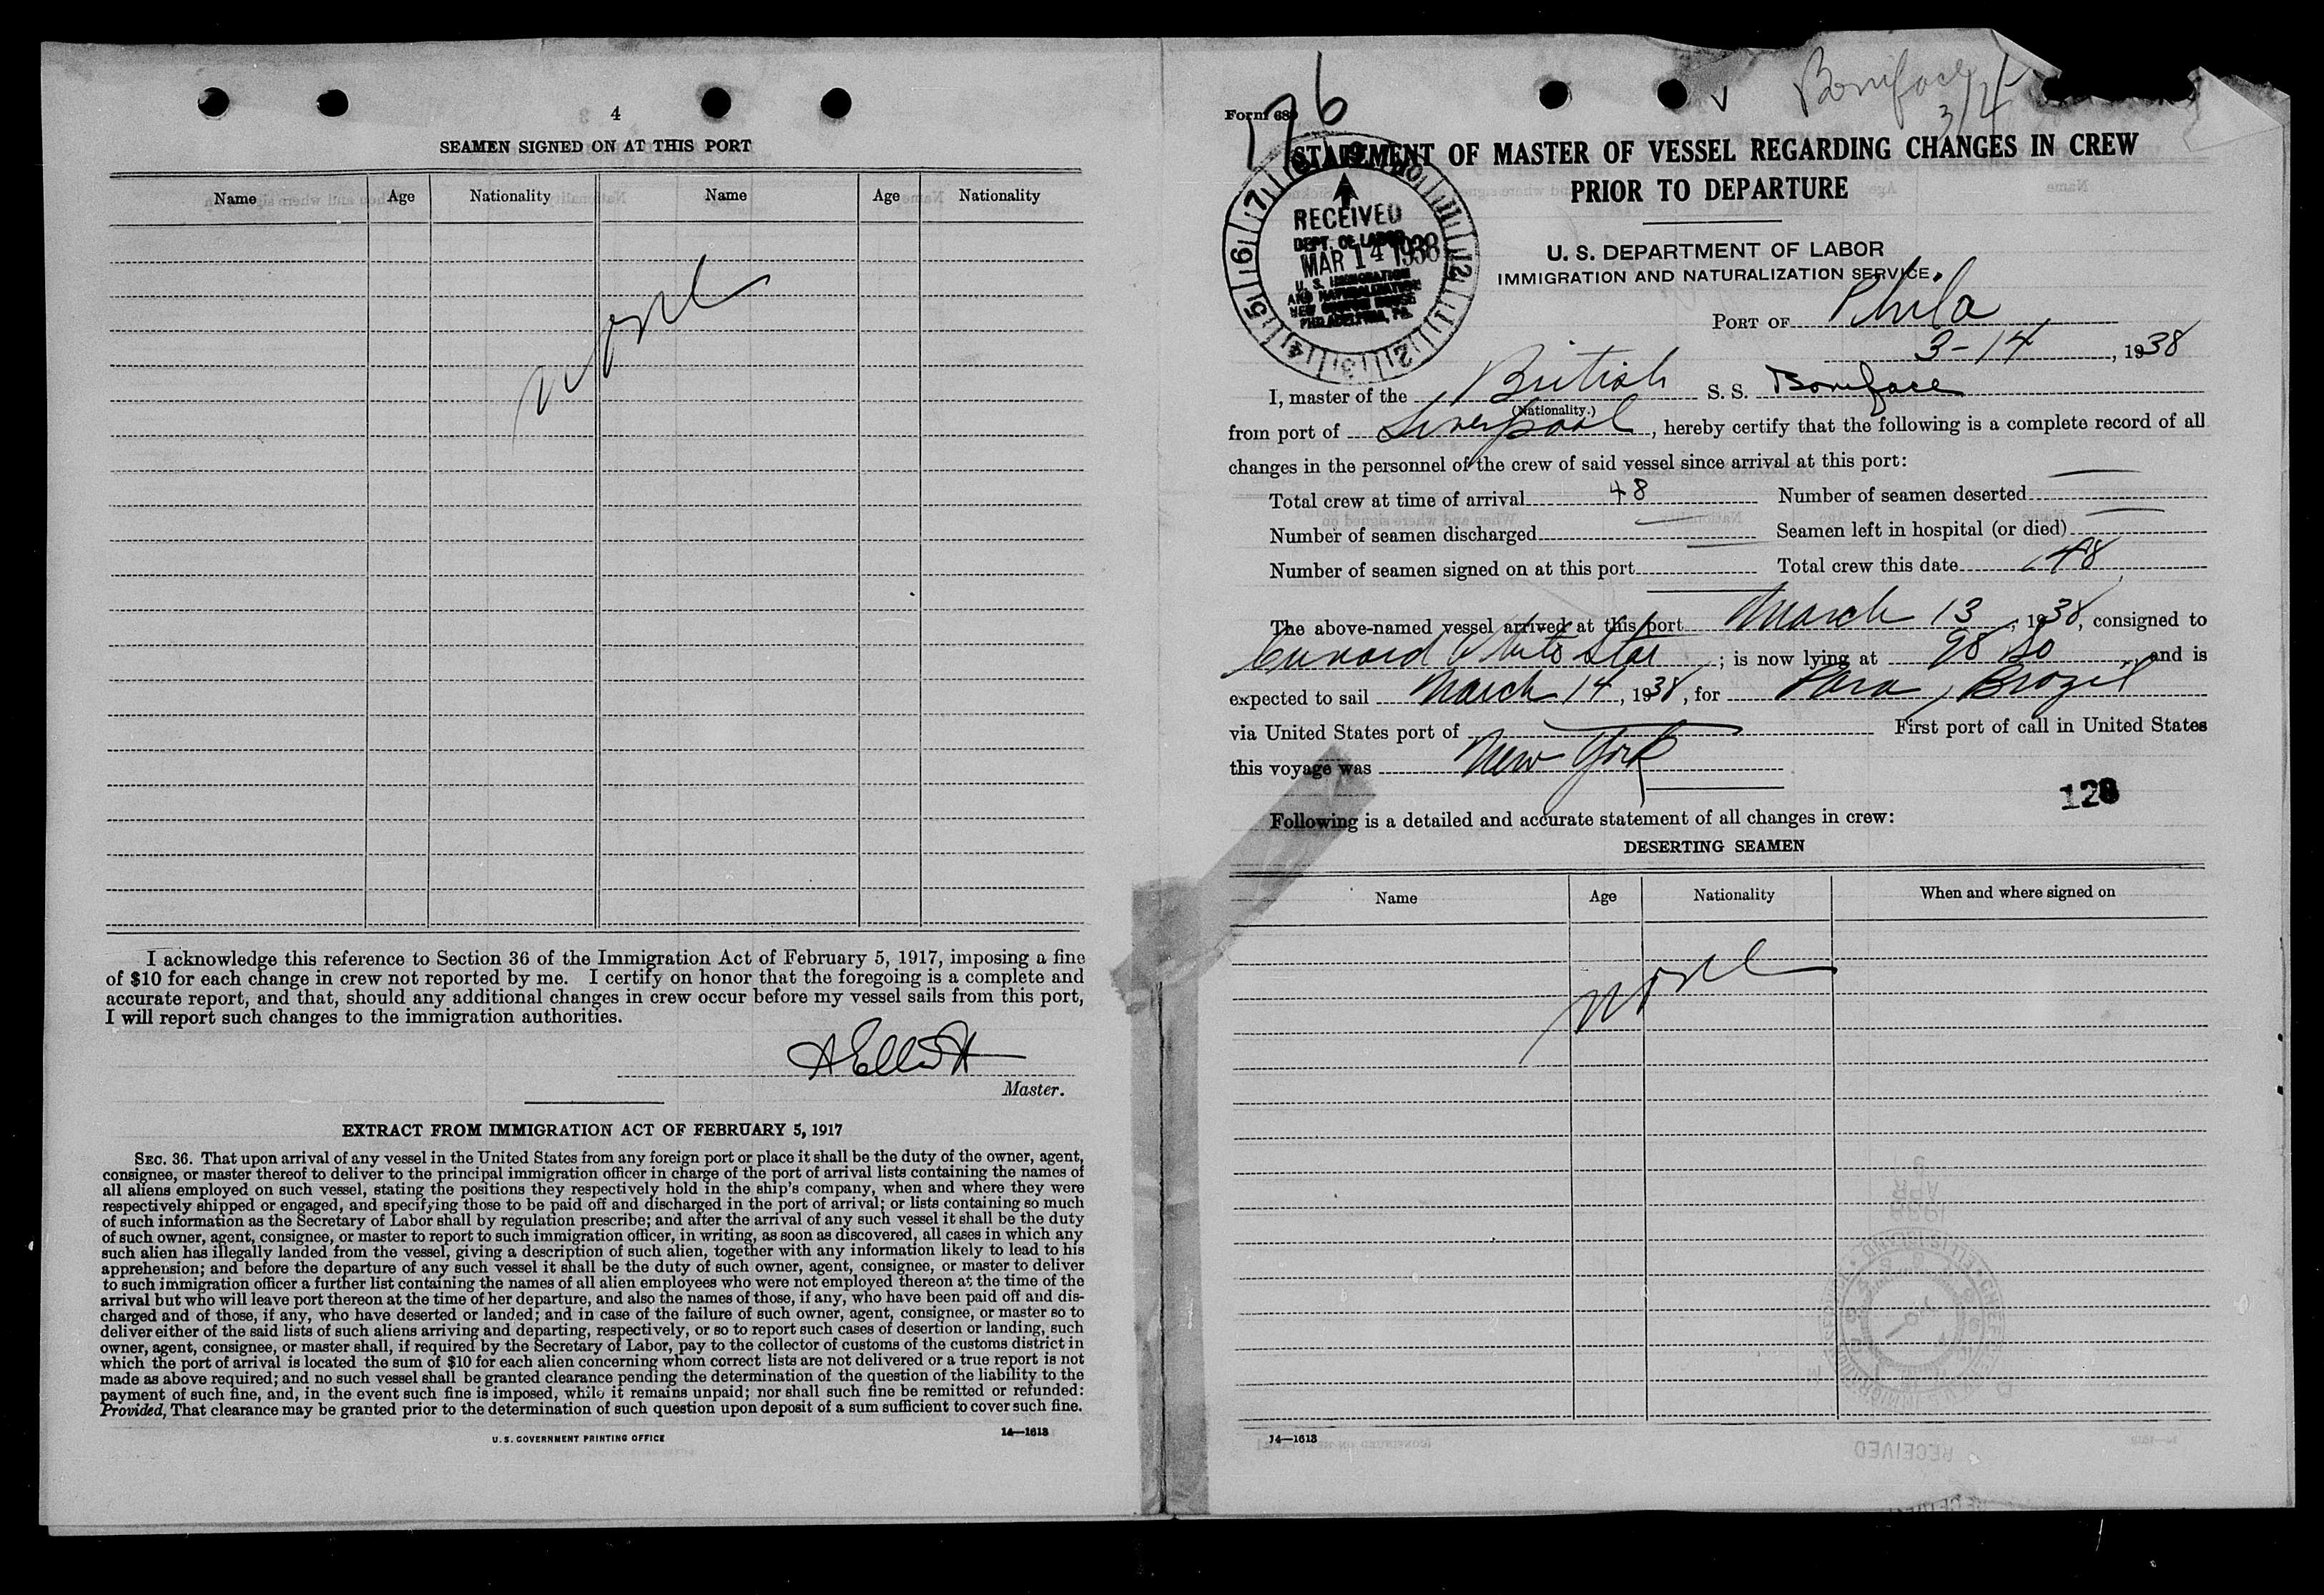 4
SEAMEN SIGNED ON AT THIS PORT
Name Age Nationality Name Age Nationality
None
I acknowledge this reference to Section 36 of the Immigration Act of February 5, 1917, imposing a fine
of $10 for each change in crew not reported by me. I certify on honor that the foregoing is a complete and
accurate report, and that, should any additional changes in crew occur before my vessel sails from this port,
I will report such changes to the immigration authorities.
A Elliott
Master.
EXTRACT FROM IMMIGRATION ACT OF FEBRUARY 5, 1917
SEC. 36. That upon arrival of any vessel in the United States from any foreign port or place it shall be the duty of the owner, agent,
consignee, or master thereof to deliver to the principal immigration officer in charge of the port of arrival lists containing the names of
all aliens employed on such vessel, stating the positions they respectively hold in the ship's company, when and where they were
respectively shipped or engaged, and specifying those to be paid off and discharged in the port of arrival; or lists containing so much
of such information as the Secretary of Labor shall by regulation prescribe; and after the arrival of any such vessel it shall be the duty
of such owner, agent, consignee, or master to report to such immigration officer, in writing, as soon as discovered, all cases in which any
such alien has illegally landed from the vessel, giving a description of such alien, together with any information likely to lead to his
apprehension; and before the departure of any such vessel it shall be the duty of such owner, agent, consignee, or master to deliver
to such immigration officer a further list containing the names of all alien employees who were not employed thereon at the time of the
arrival but who will leave port thereon at the time of her departure, and also the names of those, if any, who have been paid off and dis-
charged and of those, if any, who have deserted or landed; and in case of the failure of such owner, agent, consignee, or master so to
deliver either of the said lists of such aliens arriving and departing, respectively, or so to report such cases of desertion or landing, such
owner, agent, consignee, or master shall, if required by the Secretary of Labor, pay to the collector of customs of the customs district in
which the port of arrival is located the sum of $10 for each alien concerning whom correct lists are not delivered or a true report is not
made as above required; and no such vessel shall be granted clearance pending the determination of the question of the liability to the
payment of such fine, and, in the event such fine is imposed, while it remains unpaid; nor shall such fine be remitted or refunded:
Provided, That clearance may be granted prior to the determination of such question upon deposit of a sum sufficient to cover such fine.
U. S. GOVERNMENT PRINTING OFFICE 14—1613
176
Boniface
3/4
Form 689
STATEMENT OF MASTER OF VESSEL REGARDING CHANGES IN CREW
PRIOR TO DEPARTURE
RECEIVED
DEPT. OF LABOR
MAR 14 1938
U. S. IMMIGRATION
AND NATURALIZATION
NEW CUSTOM HOUSE
PHILADELPHIA, PA.
U. S. DEPARTMENT OF LABOR
IMMIGRATION AND NATURALIZATION SERVICE
PORT OF Phila
3-14, 1938
I, master of the British S. S. Boniface
(Nationality.)
from port of Liverpool, hereby certify that the following is a complete record of all
changes in the personnel of the crew of said vessel since arrival at this port:
Total crew at time of arrival 48 Number of seamen deserted —
Number of seamen discharged — Seamen left in hospital (or died) —
Number of seamen signed on at this port — Total crew this date 48
The above-named vessel arrived at this port March 13, 1938, consigned to
Cunard White Star; is now lying at 98 So, and is
expected to sail March 14, 1938, for Para, Brazil
via United States port of — First port of call in United States
this voyage was New York
128
Following is a detailed and accurate statement of all changes in crew:
DESERTING SEAMEN
Name Age Nationality When and where signed on
None
14—1613